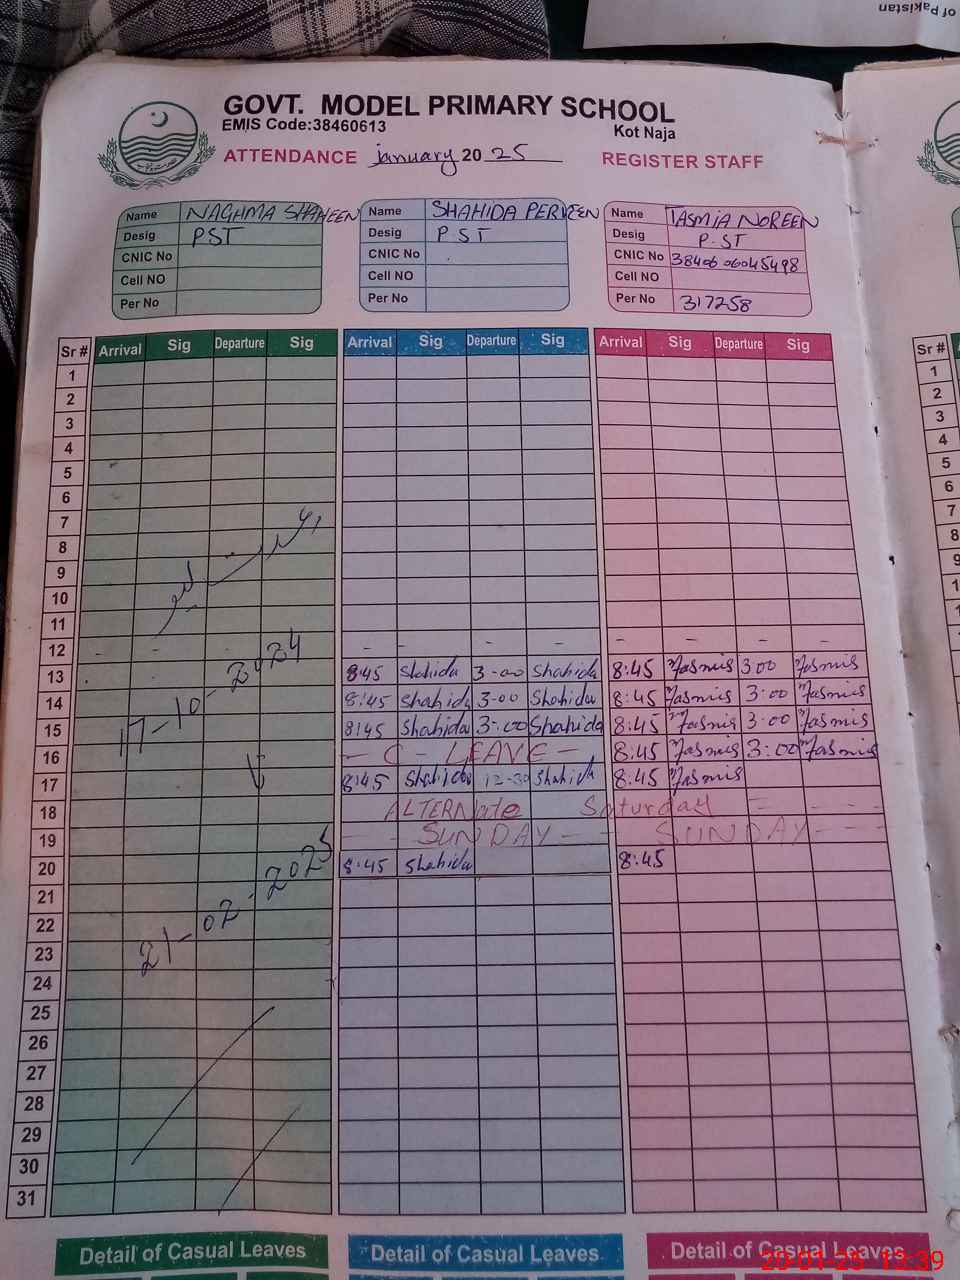 of Pakistan
GOVT. MODEL PRIMARY SCHOOL
EMIS Code:38460613
Kot Naja
ATTENDANCE january 2025 REGISTER STAFF
Name NAGHMA SHAHEEN
Desig PST
CNIC No
Cell NO
Per No
Name SHAHIDA PERVEEN
Desig P.ST
CNIC No
Cell NO
Per No
Name TASMIA NOREEN
Desig P.ST
CNIC No 38406 06045498
Cell NO
Per No 317258
Sr # Arrival Sig Departure Sig Arrival Sig Departure Sig Arrival Sig Departure Sig
1
2
3
4
5
6
7
8
9
10
11
12 - - - - - - - - - -
13 8:45 Shahida 3-00 Shahida 8:45 Tasmia 3:00 Tasmia
14 8:45 Shahida 3-00 Shahida 8:45 Tasmia 3:00 Tasmia
15 8:45 Shahida 3:00 Shahida 8:45 Tasmia 3:00 Tasmia
16 - C - LEAVE - 8:45 Tasmia 3:00 Tasmia
17 8:45 Shahida 12-30 Shahida 8:45 Tasmia
18 ALTERNate Saturday - - - -
19 - - SUNDAY - - - SUNDAY - - -
20 8:45 Shahida 8:45
21
22
23
24
25
26
27
28
29
30
31
17-10-2024
21-02-2025
Detail of Casual Leaves Detail of Casual Leaves Detail of Casual Leaves
Sr #
1
2
3
4
5
6
7
8
9
20-01-25 13:39